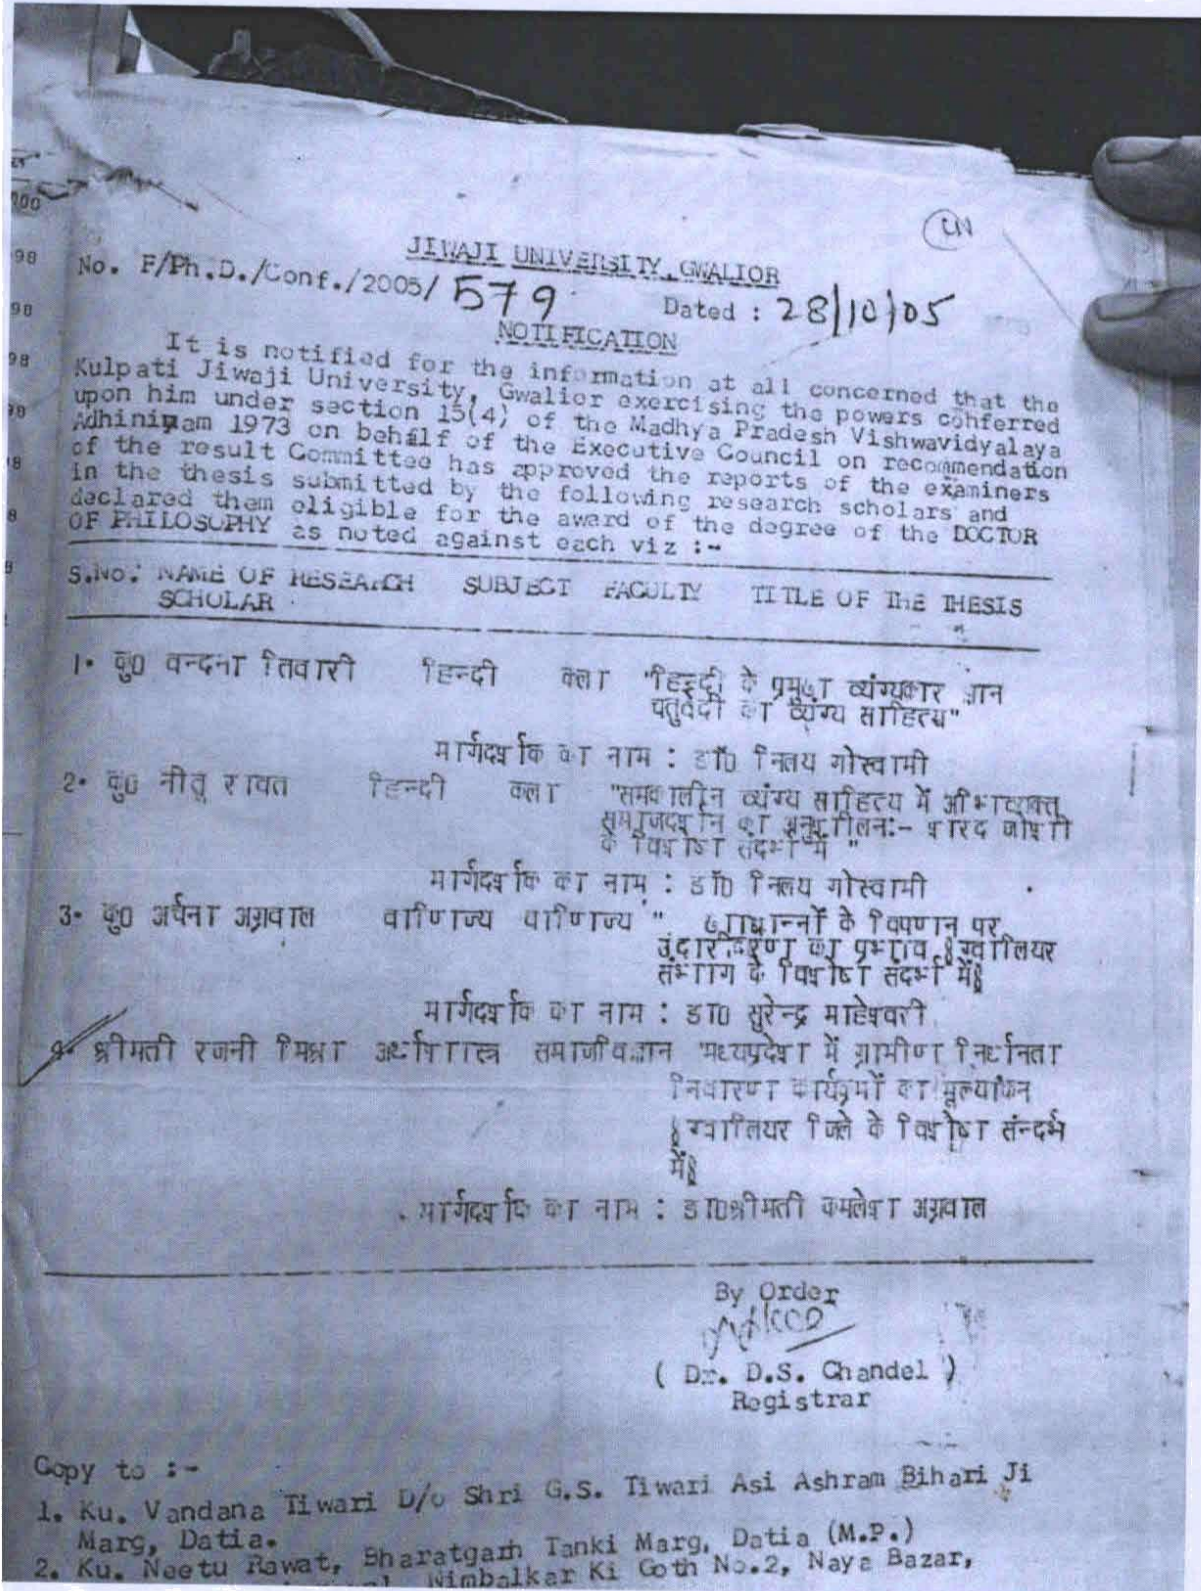 JIWAJI UNIVERSITY, GWALIOR
No. F/Ph.D./Conf./2005/ 579 Dated : 28/10/05
NOTIFICATION
It is notified for the information at all concerned that the
Kulpati Jiwaji University, Gwalior exercising the powers conferred
upon him under section 15(4) of the Madhya Pradesh Vishwavidyalaya
Adhiniyam 1973 on behalf of the Executive Council on recommendation
of the result Committee has approved the reports of the examiners
in the thesis submitted by the following research scholars and
declared them eligible for the award of the degree of the DOCTOR
OF PHILOSOPHY as noted against each viz :-
S.No. NAME OF RESEARCH SUBJECT FACULTY TITLE OF THE THESIS
SCHOLAR
1. कु0 वन्दना तिवारी हिन्दी कला "हिन्दी के प्रमुख व्यंग्यकार ज्ञान
चतुर्वेदी का व्यंग्य साहित्य"
मार्गदर्शक का नाम : डॉ0 निलय गोस्वामी
2. कु0 नीतू रावत हिन्दी कला "समकालीन व्यंग्य साहित्य में अभिव्यक्त
समाजदर्शन का अनुशीलन:- शरद जोशी
के विशेष संदर्भ में "
मार्गदर्शक का नाम : डॉ0 निलय गोस्वामी
3. कु0 अर्चना अग्रवाल वाणिज्य वाणिज्य " खाद्यान्नों के विपणन पर
उदारीकरण का प्रभाव ॥ग्वालियर
संभाग के विशेष संदर्भ में॥
मार्गदर्शक का नाम : डा0 सुरेन्द्र माहेश्वरी
4. श्रीमती रजनी मिश्रा अर्थशास्त्र समाजविज्ञान "मध्यप्रदेश में ग्रामीण निर्धनता
निवारण कार्यक्रमों का मूल्यांकन
॥ग्वालियर जिले के विशेष संन्दर्भ
में॥
मार्गदर्शक का नाम : डा0श्रीमती कमलेश अग्रवाल
By Order
( Dr. D.S. Chandel )
Registrar
Copy to :-
1. Ku. Vandana Tiwari D/o Shri G.S. Tiwari Asi Ashram Bihari Ji
Marg, Datia.
2. Ku. Neetu Rawat, Bharatgarh Tanki Marg, Datia (M.P.)
Nimbalkar Ki Goth No.2, Naya Bazar,